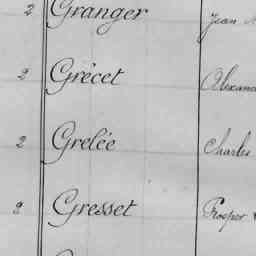 2 Granger Jean
2 Grécet
2 Grelée Charles
2 Gresset Prosper